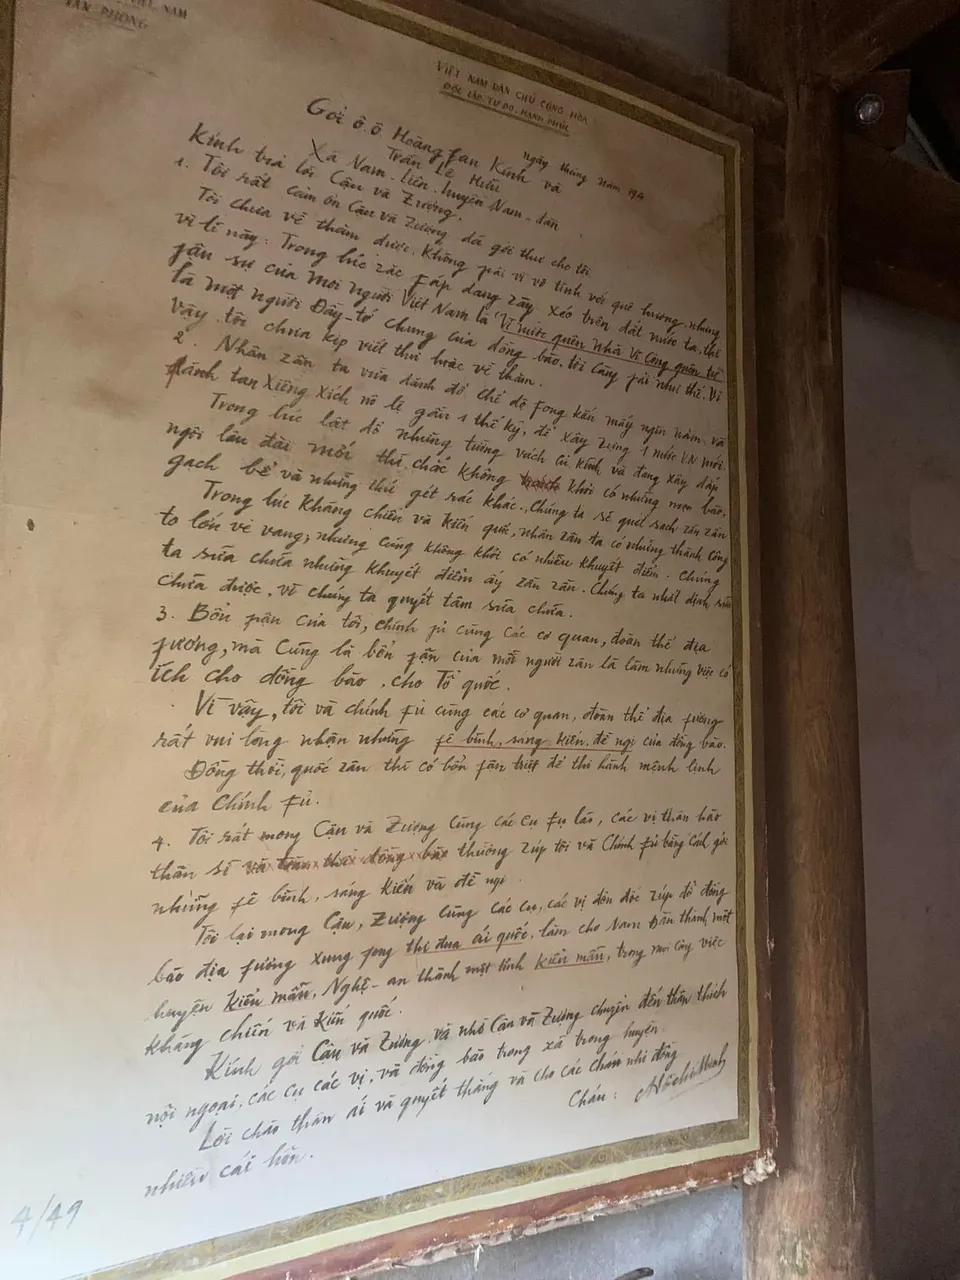 VIỆT NAM
VĂN PHÒNG
VIỆT NAM DÂN CHỦ CỘNG HÒA
ĐỘC LẬP, TỰ DO, HẠNH PHÚC
ngày tháng năm 194
Gởi ô.ô Hoàng Fan Kính và
Trần Lê Hữu
Xã Nam-Liên, huyện Nam-đàn
Kính trả lời Cậu và Zượng.
1. Tôi rất cảm ơn Cậu và Zượng đã gởi thư cho tôi
Tôi chưa về thăm được. Không fải vì vô tình với quê hương, nhưng
vì lẽ này: Trong lúc zặc Fáp đang zày xéo trên đất nước ta, thì
fận sự của mọi người Việt Nam là "Vì nước quên Nhà Vì Công quên tư"
là một người Đầy-tớ chung của đồng bào, tôi càng fải như thế. Vì
vậy, tôi chưa kịp viết thư hoặc về thăm.
2. Nhân zân ta vừa đánh đổ chế độ fong kiến mấy ngìn năm, và
đánh tan xiềng xích nô lệ gần 1 thế kỷ, để xây zựng 1 nước V.N mới.
Trong lúc lật đổ những tường vách cũ kĩnh và đang xây đắp
ngôi lâu đài mới thì chắc không khỏi có những mẹo bào,
gạch bể và những thứ gét rác khác. Chúng ta sẽ quét sạch zần zần
Trong lúc Kháng chiến và kiến quốc, nhân zân ta có những thành công
to lớn vẻ vang; nhưng cũng không khỏi có nhiều khuyết điểm. Chúng
ta sửa chữa những khuyết điểm ấy zần zần. Chúng ta nhất định sửa
chữa được, vì chúng ta quyết tâm sửa chữa.
3. Bổn fận của tôi, chính fủ cùng các cơ quan, đoàn thể địa
fương, mà cũng là bổn fận của mỗi người zân là làm những việc có
ích cho đồng bào, cho Tổ quốc.
Vì vậy, tôi và chính fủ cùng các cơ quan, đoàn thể địa fương
rất vui lòng nhận những fê bình, sáng kiến, đề ngị của đồng bào.
Đồng thời, quốc zân thì có bổn fận triệt để thi hành mệnh lịnh
của Chính fủ.
4. Tôi rất mong Cậu và Zượng cùng các cụ fụ lão, các vị thân hào
thân sĩ thường zúp tôi và Chính fủ bằng cách gởi
những fê bình, sáng kiến và đề ngị.
Tôi lại mong Cậu, Zượng cùng các cụ, các vị đôn đốc zúp đỡ đồng
bào địa fương xung fong thi đua ái quốc, làm cho Nam Đàn thành một
huyện kiểu mẫu, Nghệ-an thành một tỉnh kiểu mẫu, trong mọi công việc
kháng chiến và kiến quốc.
Kính gởi Cậu và Zượng, và nhờ Cậu và Zượng chuyển đến thân thích
nội ngoại, các cụ các vị, và đồng bào trong xã trong huyện
Lời chào thân ái và quyết thắng và cho các cháu nhi đồng
nhiều cái hôn.
Cháu: Hồ Chí Minh
4/49